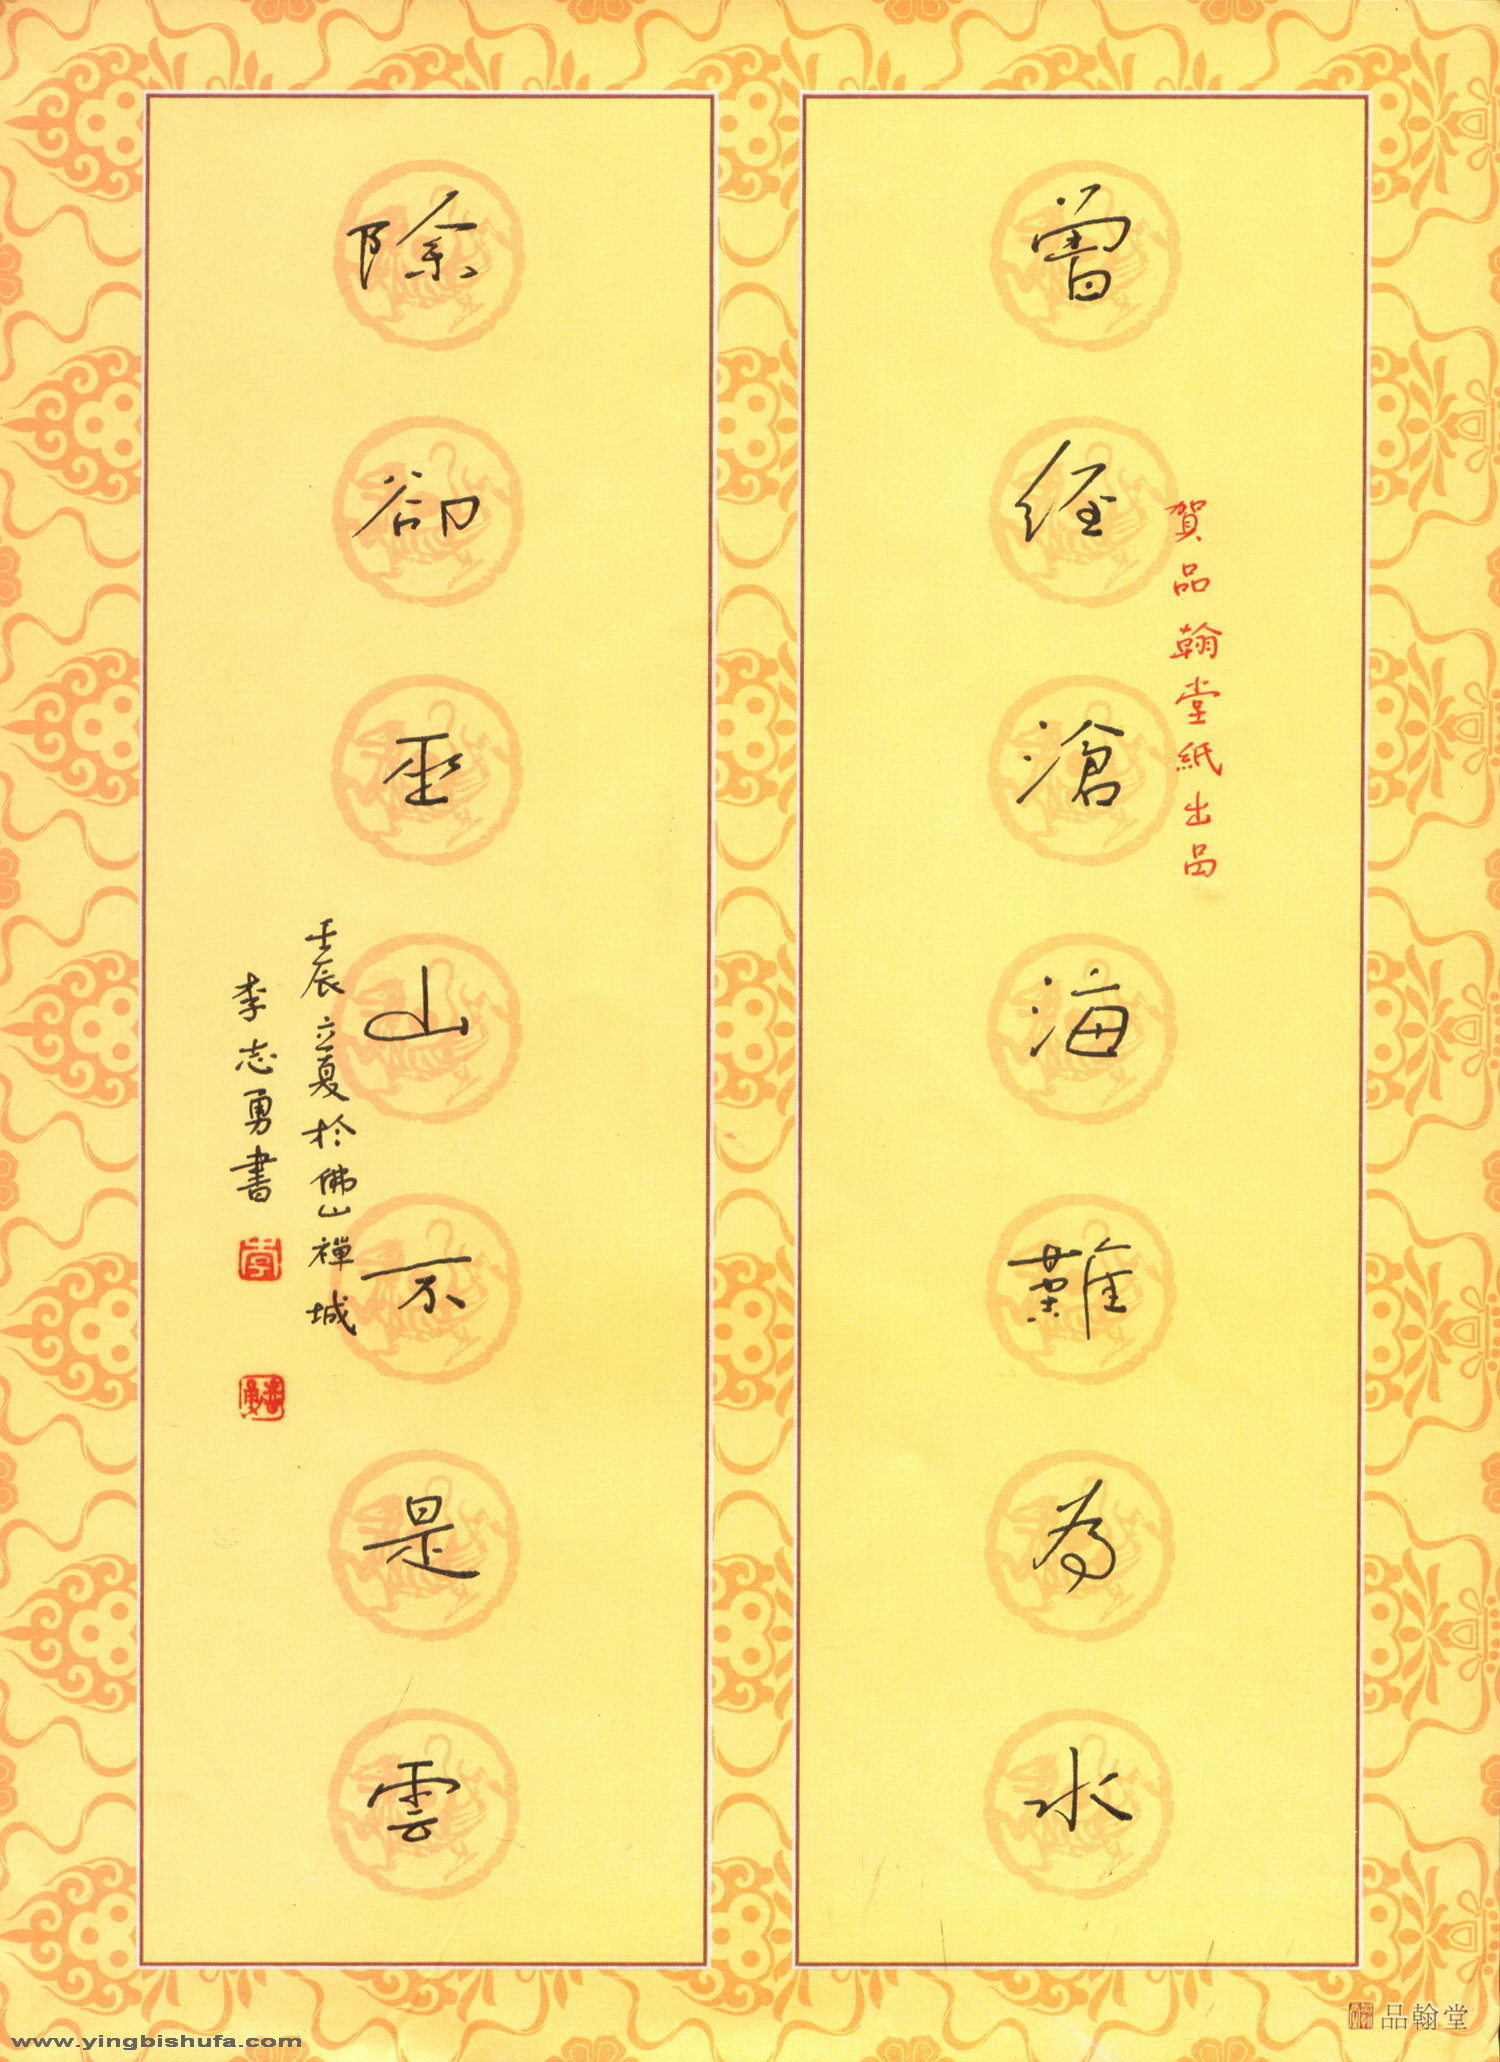 曾經滄海難為水
賀品翰堂紙出品
除卻巫山不是雲
壬辰立夏於佛山禪城
李志勇書
品翰堂
www.yingbishufa.com